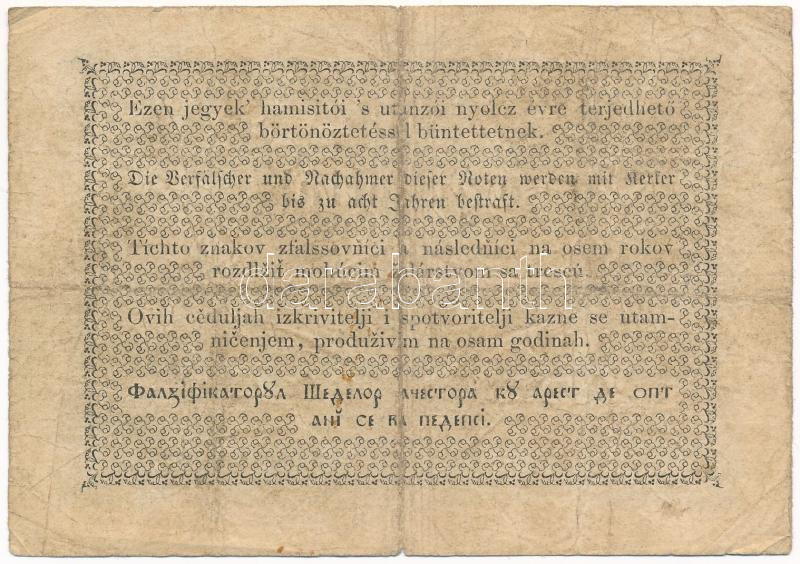 Ezen jegyek' hamisitói 's utánzói nyolcz évre terjedhető
börtönöztetéssel büntettetnek.
Die Verfälscher und Nachahmer dieser Noten werden mit Kerker
bis zu acht Jahren bestraft.
Tíchto znakov zfalssovňíci a následňíci na osem rokov
rozdlžiť mohúcim žalárstvom sa trescú.
Ovih ceduljah izkrivitelji i spotvoritelji kazne se utam-
ničenjem, produživim na osam godinah.
Фалꙁіфікаторꙋл Шеделор ачестора кꙋ арест де опт
анĭ се ва педепсі.
darabanth